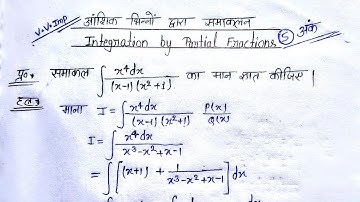 V.V.Imp
आंशिक भिन्नों द्वारा समाकलन
Integration by Partial Fractions 5 अंक
प्र०१ समाकल ∫ x⁴dx/(x-1)(x²+1) का मान ज्ञात कीजिए।
हल१ माना I = ∫ x⁴dx/(x-1)(x²+1) P(x)/Q(x)
I = ∫ x⁴dx/x³-x²+x-1
= ∫ [(x+1) + 1/x³-x²+x-1] dx